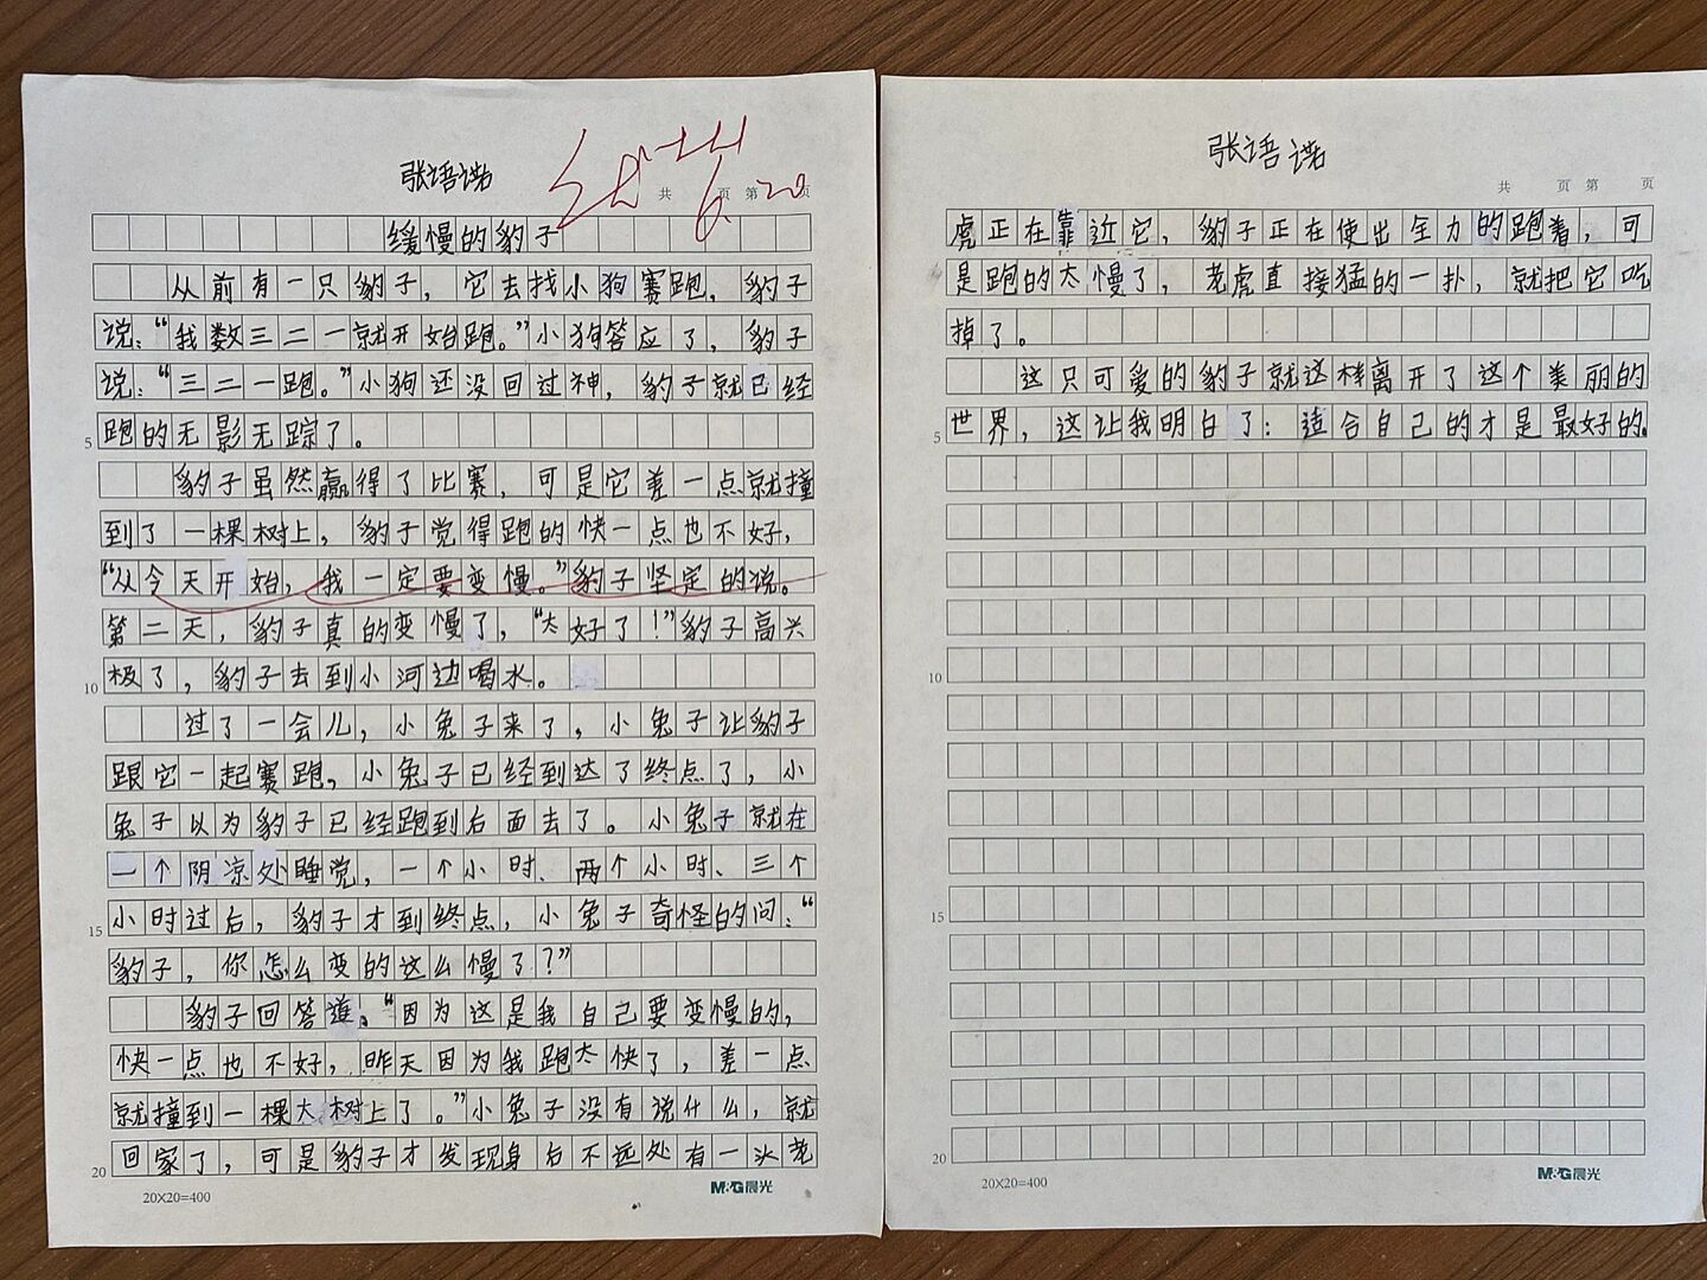 张语诺
共 页 第 页
6.20
缓慢的豹子
从前有一只豹子，它去找小狗赛跑，豹子
说：“我数三二一就开始跑。”小狗答应了，豹子
说：“三二一跑。”小狗还没回过神，豹子就已经
5 跑的无影无踪了。
豹子虽然赢得了比赛，可是它差一点就撞
到了一棵树上，豹子觉得跑的快一点也不好，
“从今天开始，我一定要变慢。”豹子坚定的说。
第二天，豹子真的变慢了，“太好了！”豹子高兴
10 极了，豹子去到小河边喝水。
过了一会儿，小兔子来了，小兔子让豹子
跟它一起赛跑，小兔子已经到达了终点了，小
兔子以为豹子已经跑到后面去了。小兔子就在
一个阴凉处睡觉，一个小时、两个小时、三个
15 小时过后，豹子才到终点，小兔子奇怪的问：“
豹子，你怎么变的这么慢了？”
豹子回答道：“因为这是我自己要变慢的，
快一点也不好，昨天因为我跑太快了，差一点
就撞到一棵大树上了。”小兔子没有说什么，就
20 回家了，可是豹子才发现身后不远处有一头老
20×20=400
M&G晨光
张语诺
共 页 第 页
虎正在靠近它，豹子正在使出全力的跑着，可
是跑的太慢了，老虎直接猛的一扑，就把它吃
掉了。
这只可爱的豹子就这样离开了这个美丽的
5 世界，这让我明白了：适合自己的才是最好的。
10
15
20
20×20=400
M&G晨光